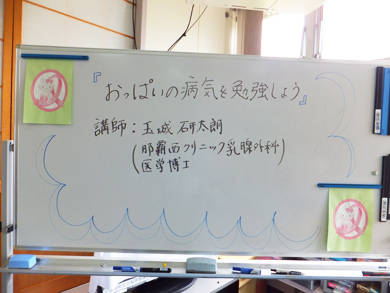 『おっぱいの病気を勉強しよう』
講師:玉城 研太朗
(那覇西クリニック乳腺外科)
医学博士